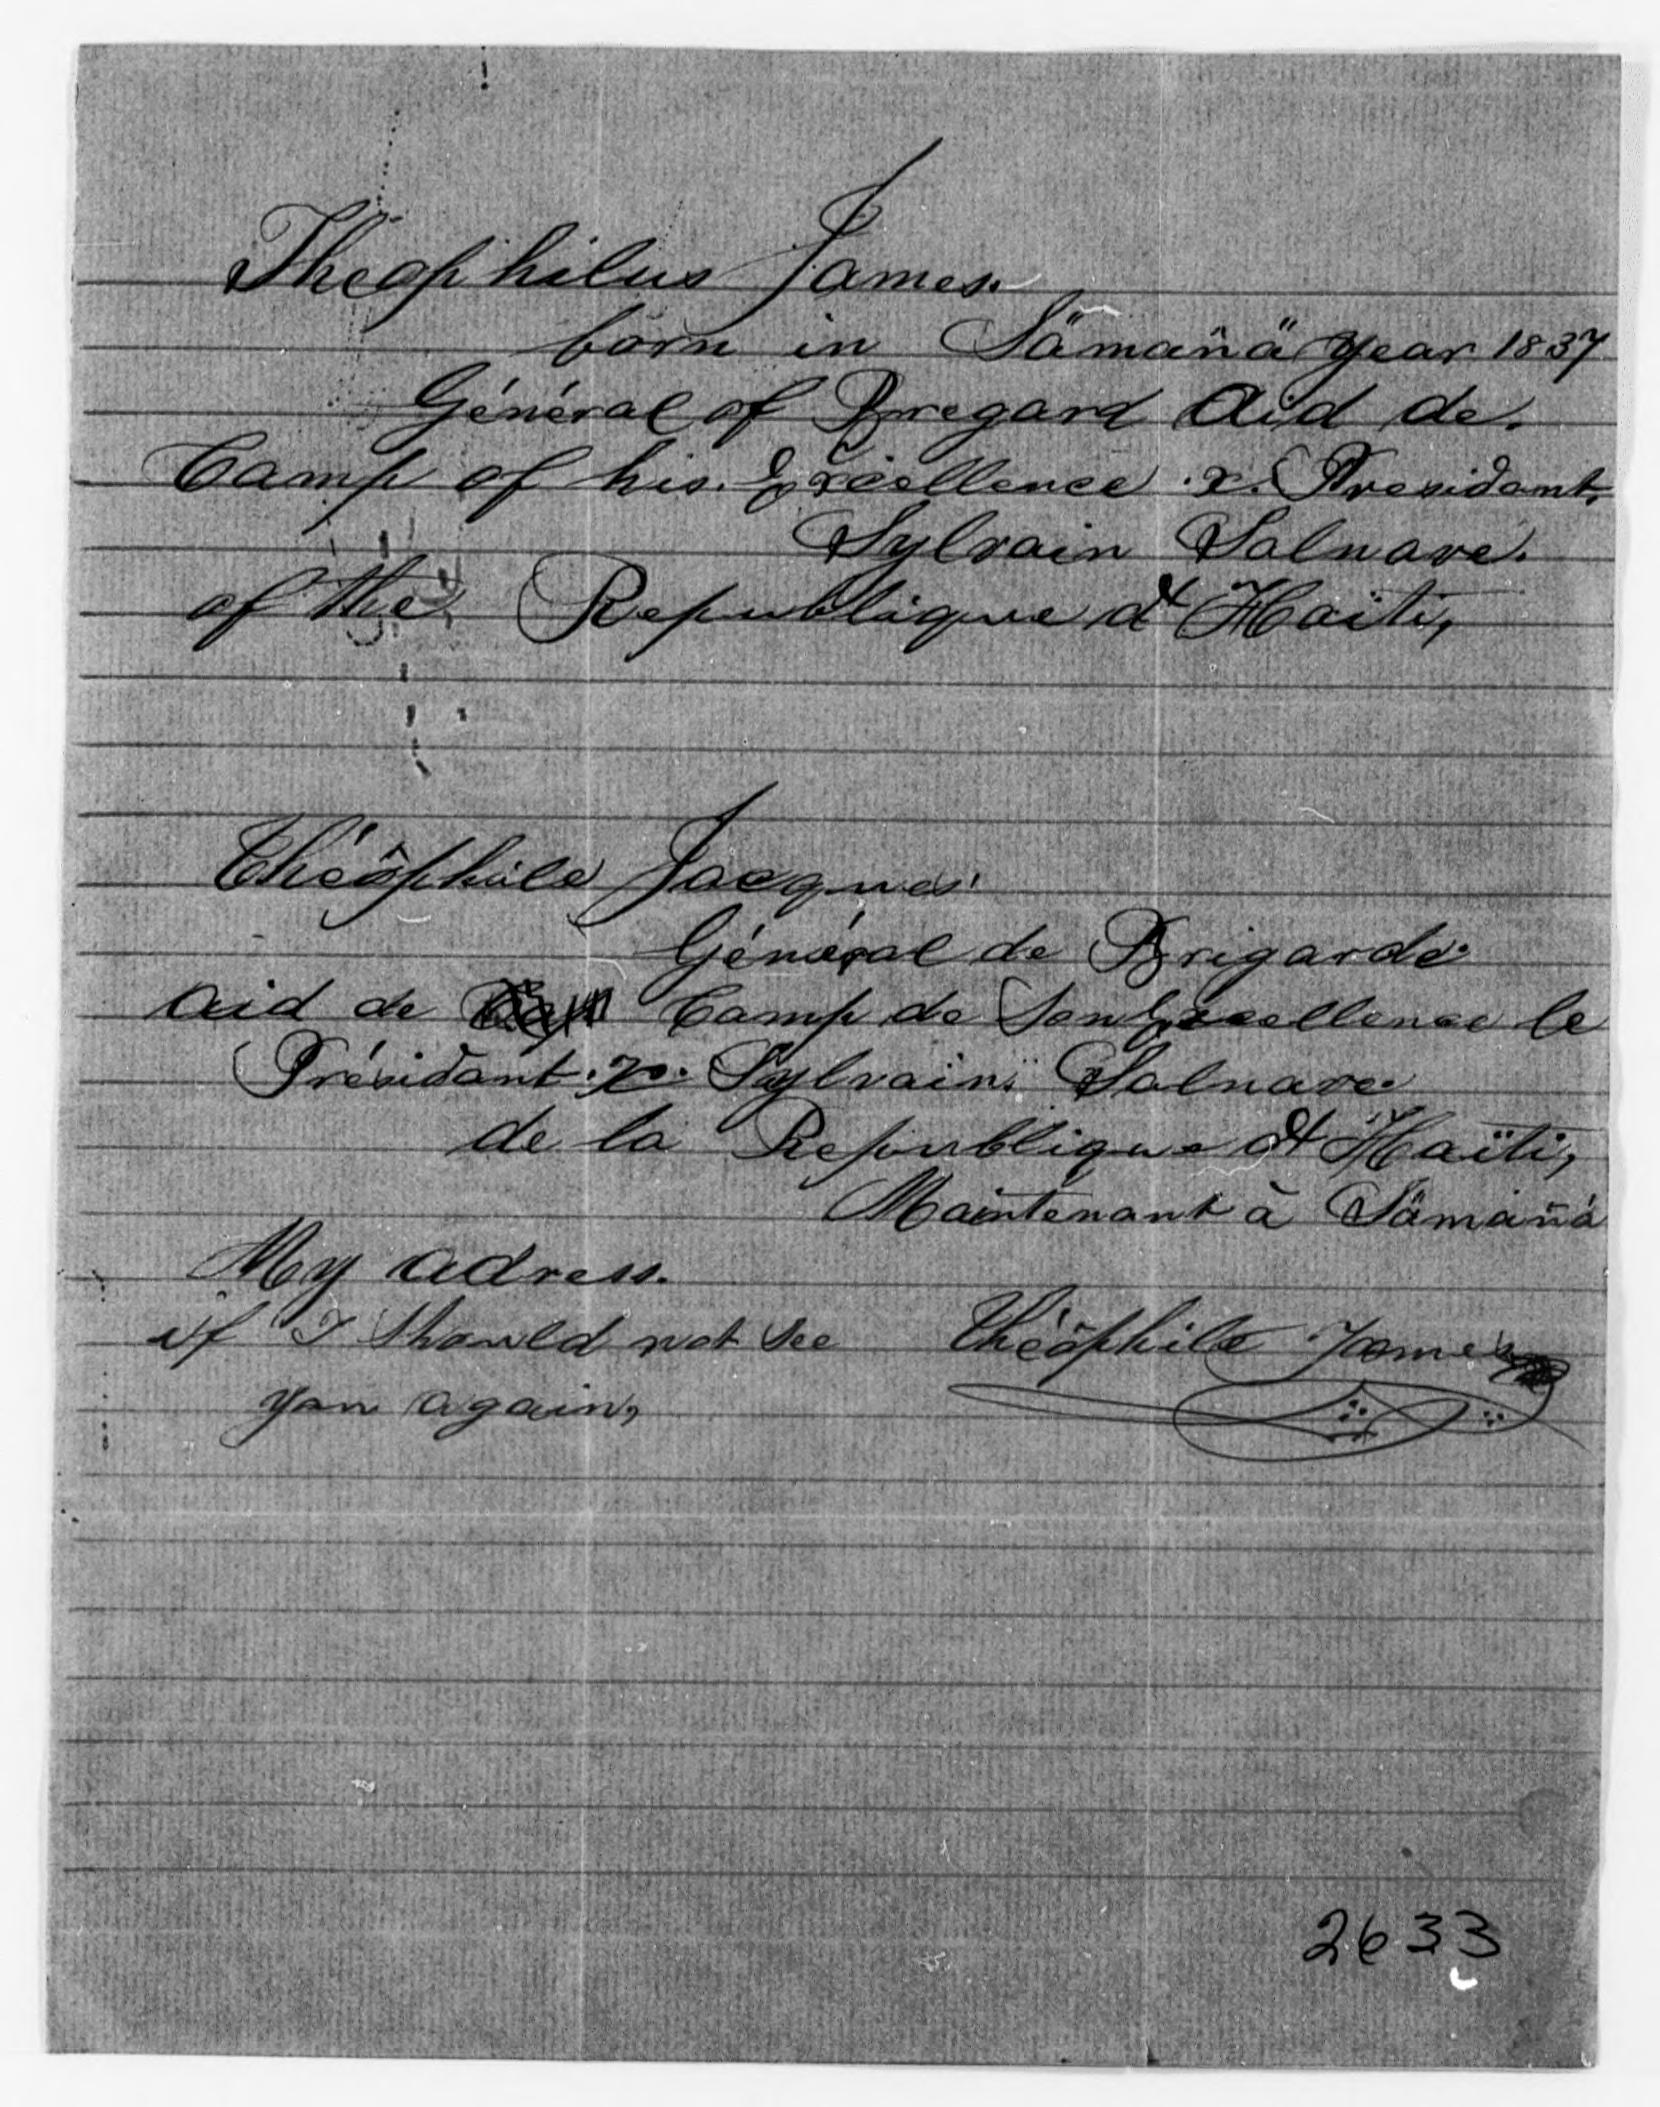 Theophilus James.
born in Sämañä year 1837
Général of Bregard Aid de.
Camp of his. Excellence .x. Presidant.
Sylvain Salnave.
of the Republique d'Haïti,
Théôphile Jacques
Général de Brigarde.
aid de Camp de Son Excellence le
Présidant .x. Sylvain Salnave.
de la Republique d'Haïti,
Maintenant à Sämañá
My adress.
if I should not see Théôphile James
you again,
2633